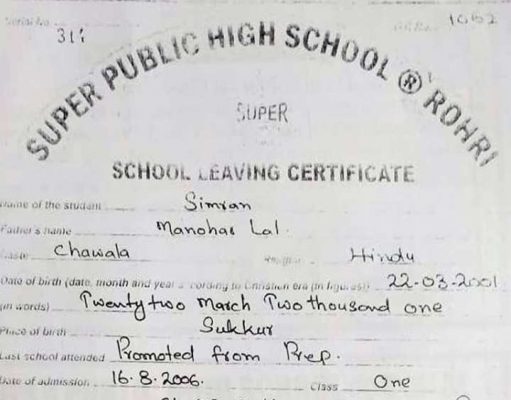 Serial No. 311 1052
SUPER PUBLIC HIGH SCHOOL ® ROHRI
SUPER
SCHOOL LEAVING CERTIFICATE
Name of the student Simran
Father's name Manohar Lal.
Caste Chawala Religion Hindu
Date of birth (date, month and year according to Christian era (in figures) 22-03-2001
(in words) Twenty two March Two thousand one
Place of birth Sukkur
Last school attended Promoted from Prep.
Date of admission 16.8.2006. Class One